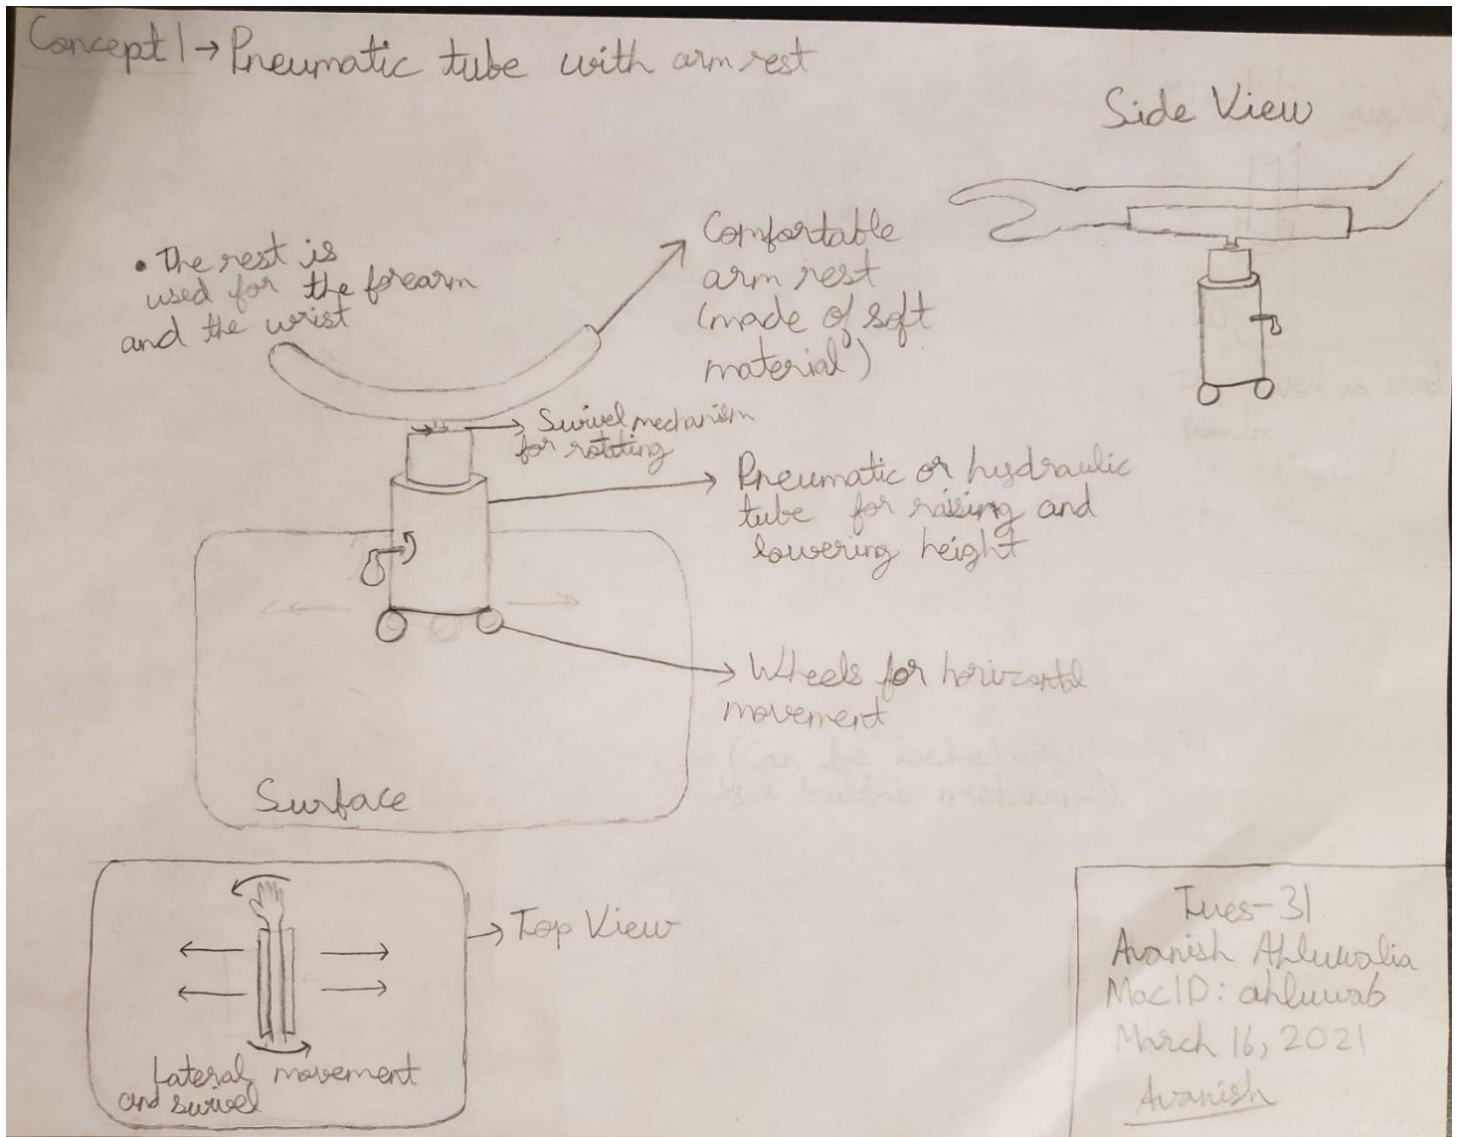 Concept 1 → Pneumatic tube with arm rest
Side View
• The rest is
used for the forearm
and the wrist
Comfortable
arm rest
(made of soft
material)
Swivel mechanism
for rotating
Pneumatic or hydraulic
tube for raising and
lowering height
Wheels for horizontal
movement
(Can be locked
by a mechanism)
Surface
Top View
Lateral movement
and swivel
Tues-31
Avanish Ahluwalia
MacID: ahluwab
March 16, 2021
Avanish